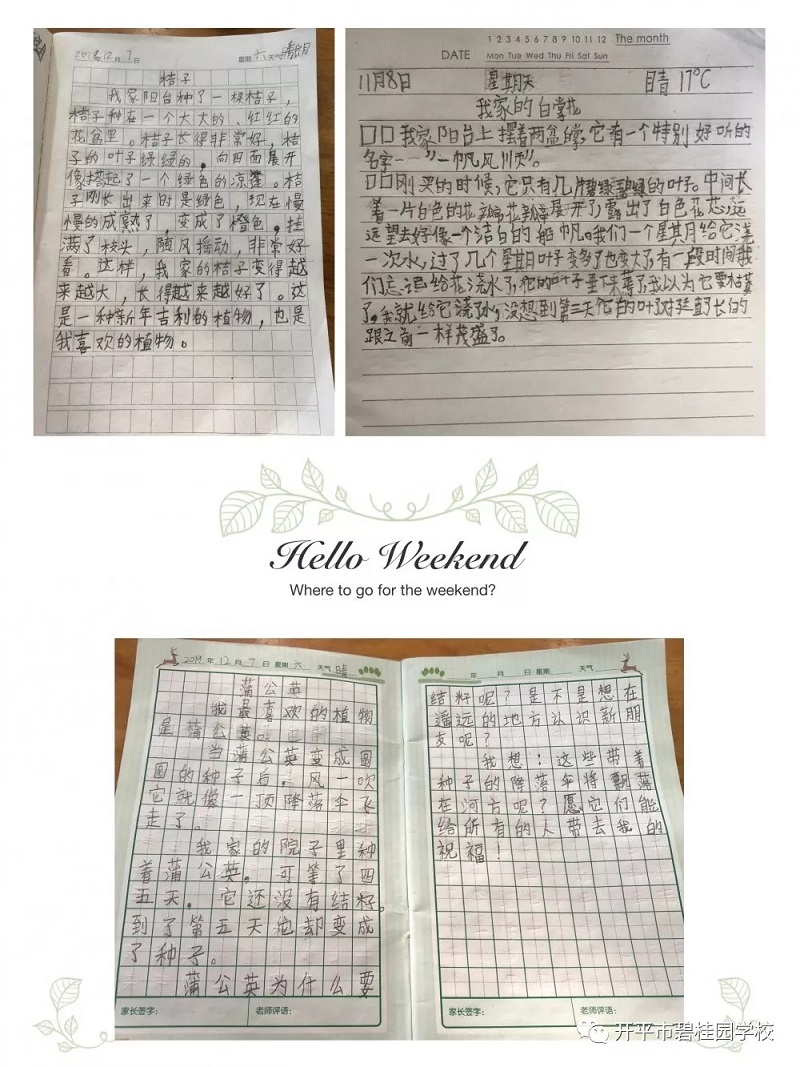 2019年12月7日 星期六 天气晴
桔子
我家阳台种了一棵桔子，
桔子种在一个大大的、红红的
花盆里。桔子长得非常好，桔
子的叶子绿绿的，向四面展开
像搭起了一个绿色的凉篷。桔
子刚长出来时是绿色，现在慢
慢的成熟了，变成了橙色，挂
满了枝头，随风摇动，非常好
看。这样，我家的桔子变得越
来越大，长得越来越好了。这
是一种新年吉利的植物，也是
我喜欢的植物。
1 2 3 4 5 6 7 8 9 10 11 12 The month
DATE Mon Tue Wed Thu Fri Sat Sun
11月8日 星期天 晴 17℃
我家的白掌花
口口我家阳台上摆着两盆白掌，它有一个特别好听的
名字——"一帆风顺"。
口口刚买的时候，它只有几片碧绿碧绿的叶子。中间长
着一片白色的花瓣，花瓣展开了，露出了白色花芯，远
远望去好像一个洁白的船帆。我们一个星期给它浇
一次水，过了几个星期叶子变多了也变大了，有一段时间我
们忘记给花浇水了，它的叶子垂下来蔫了，我以为它要枯萎
了。我就给它浇水，没想到第三天它的叶子挺直了，长的
跟之前一样茂盛了。
Hello Weekend
Where to go for the weekend?
2019年12月7日 星期六 天气晴
蒲公英
我最喜欢的植物
是蒲公英。
当蒲公英变成圆
圆的种子后，风一吹
它就像一顶降落伞飞
走了。
我家的院子里种
着蒲公英。可等了四
五天，它还没有结籽。
到了第五天它却变成
了种子。
蒲公英为什么要
家长签字： 老师评语：
年 月 日 星期 天气
结籽呢？是不是想在
遥远的地方认识新朋
友呢？
我想：这些带着
种子的降落伞将飘落
在河方呢？愿它们能
给所有的人带去我的
祝福！
家长签字： 老师评语：
开平市碧桂园学校